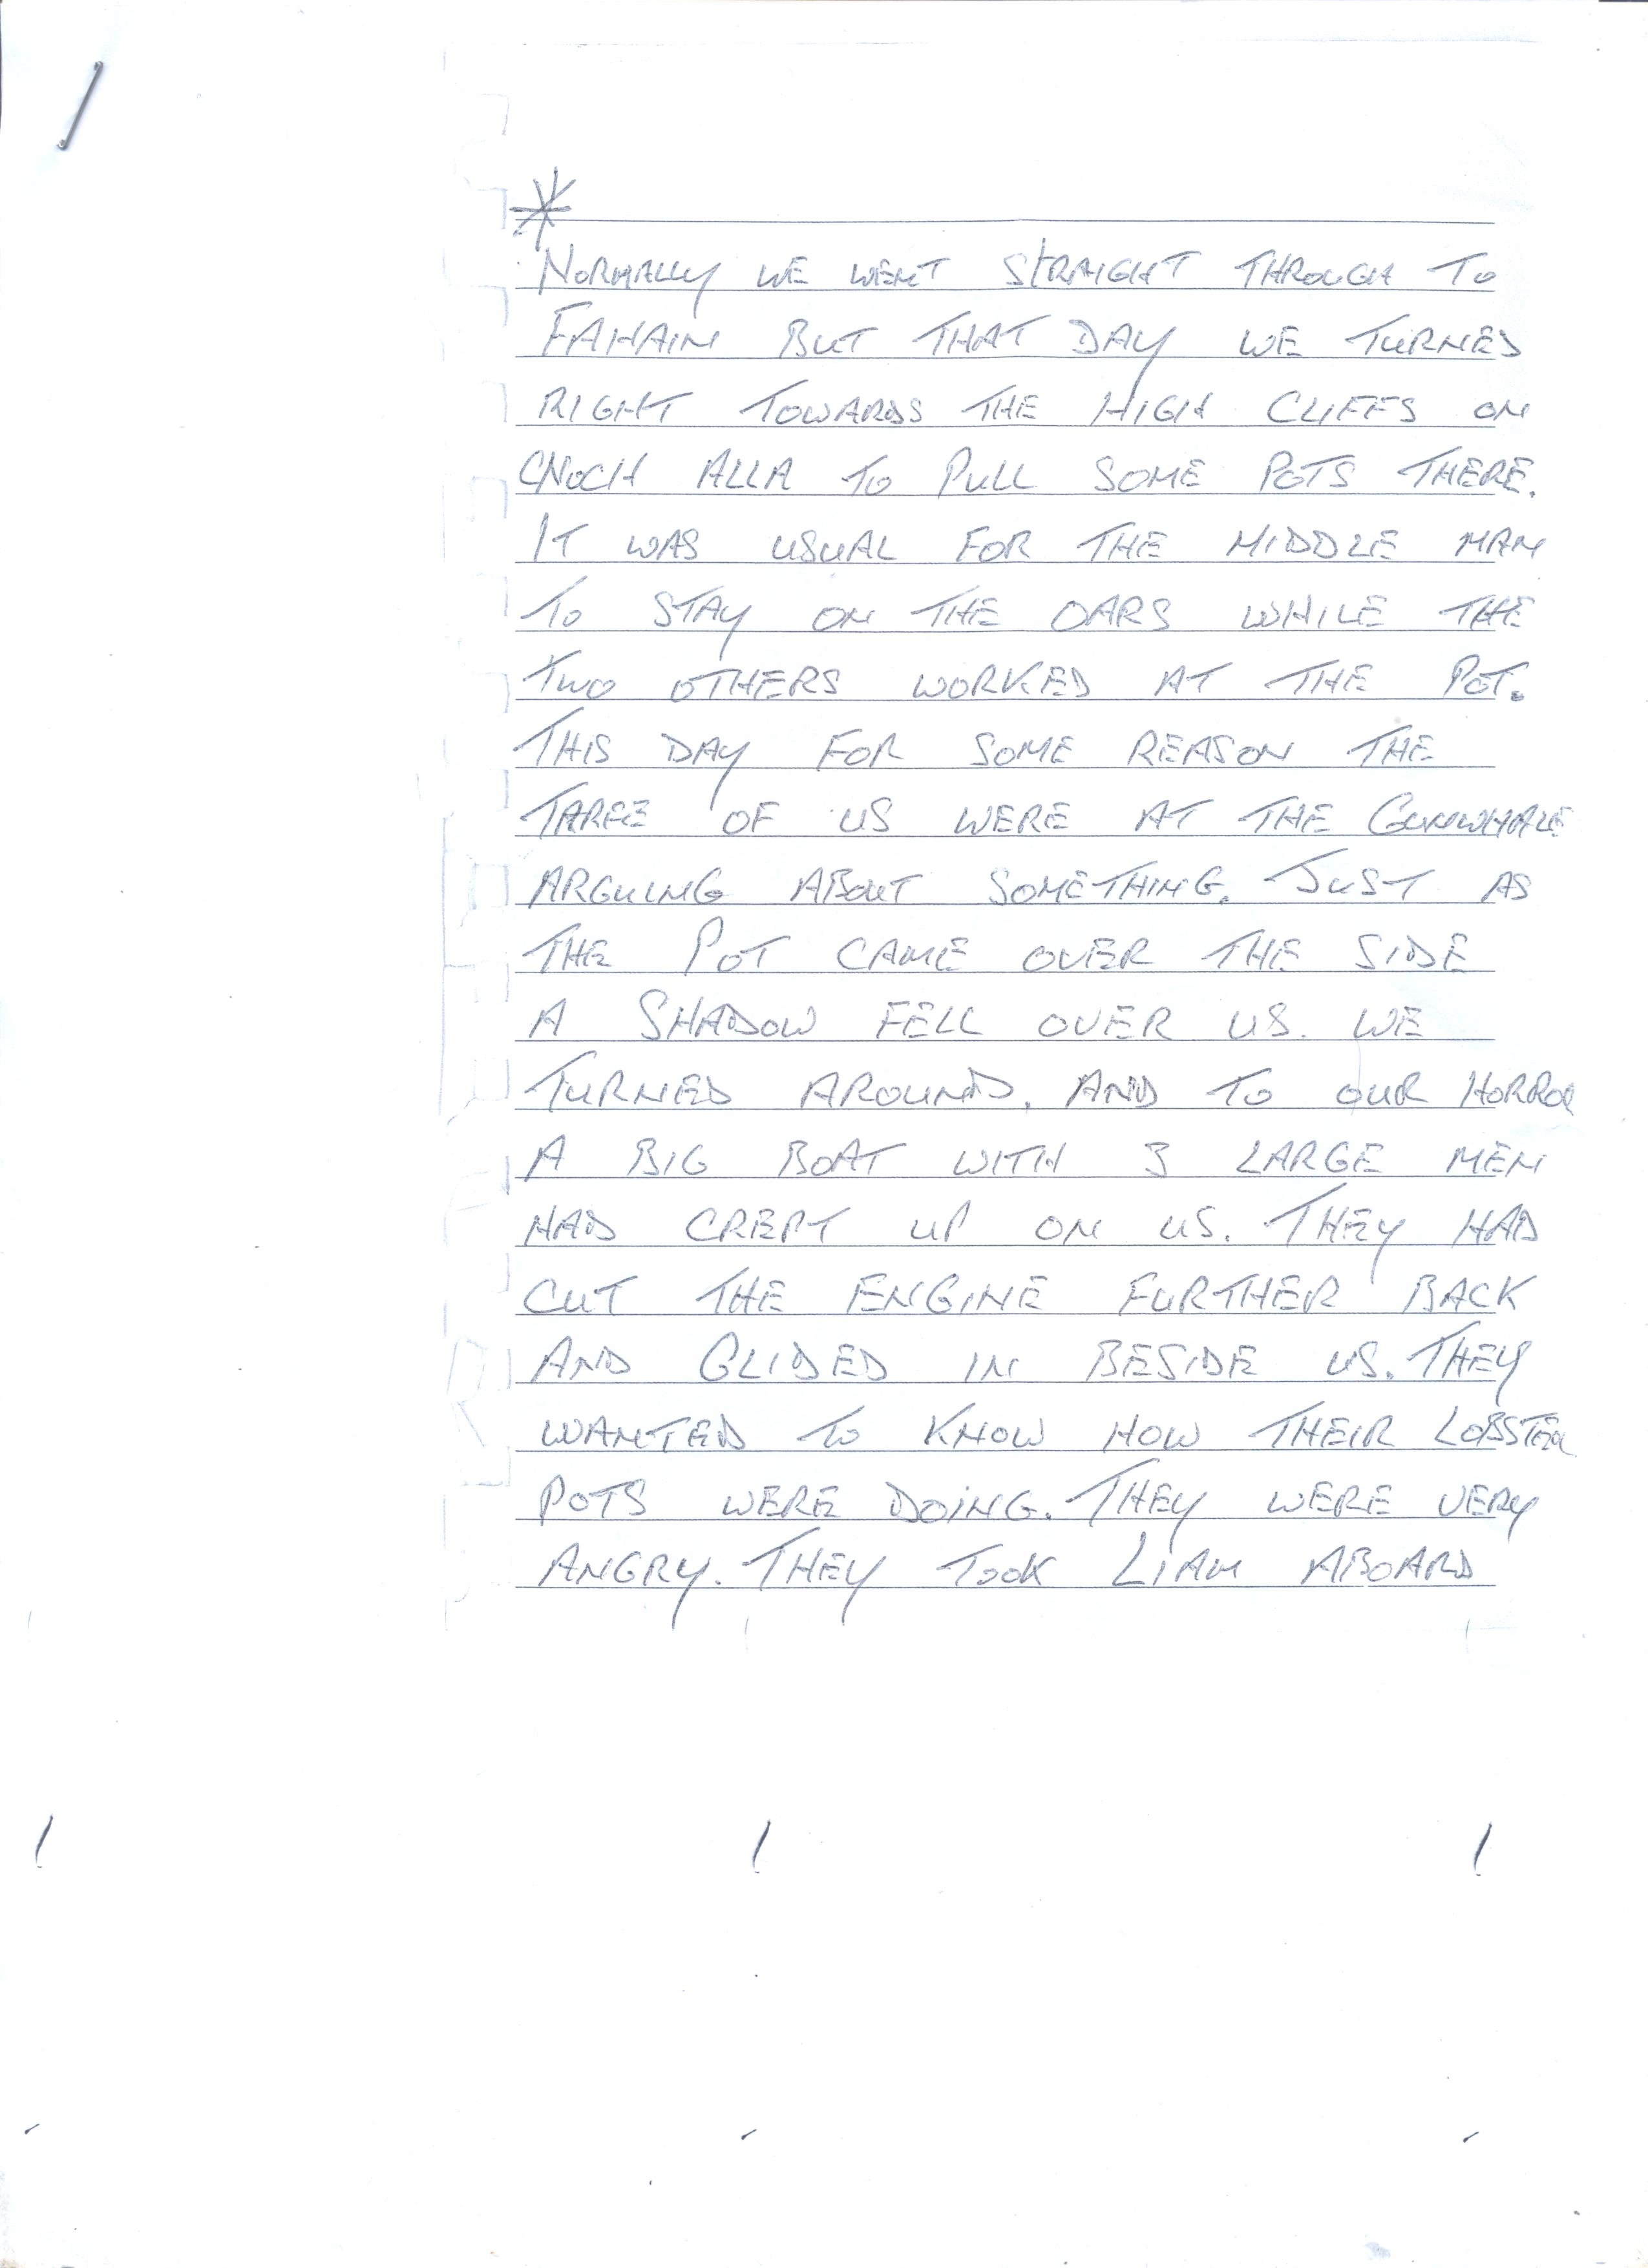 *
NORMALLY WE WENT STRAIGHT THROUGH TO
FAHAIN BUT THAT DAY WE TURNED
RIGHT TOWARDS THE HIGH CLIFFS ON
CNOCH ALLA TO PULL SOME POTS THERE.
IT WAS USUAL FOR THE MIDDLE MAN
TO STAY ON THE OARS WHILE THE
TWO OTHERS WORKED AT THE POT.
THIS DAY FOR SOME REASON THE
THREE OF US WERE AT THE GUNWHALE
ARGUING ABOUT SOMETHING. JUST AS
THE POT CAME OVER THE SIDE
A SHADOW FELL OVER US. WE
TURNED AROUND. AND TO OUR HORROR
A BIG BOAT WITH 3 LARGE MEN
HAD CREPT UP ON US. THEY HAD
CUT THE ENGINE FURTHER BACK
AND GLIDED IN BESIDE US. THEY
WANTED TO KNOW HOW THEIR LOBSTER
POTS WERE DOING. THEY WERE VERY
ANGRY. THEY TOOK LIAM ABOARD